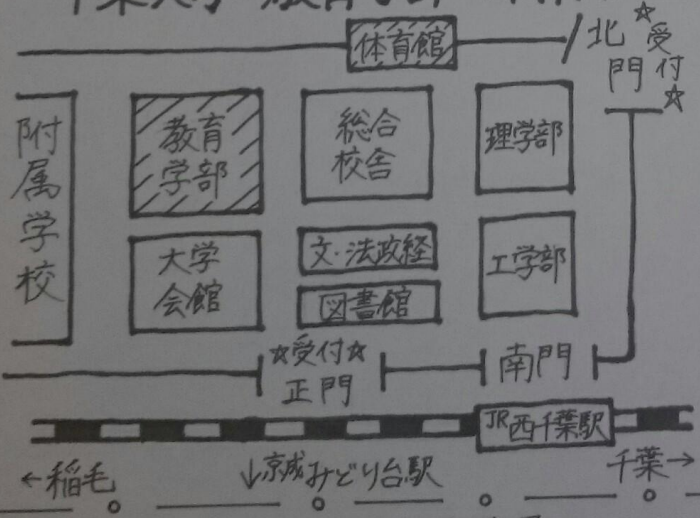 体育館
北門
☆受付☆
附属学校
教育
学部
総合
校舎
理学部
大学
会館
文・法政経
図書館
工学部
☆受付☆
正門
南門
JR西千葉駅
←稲毛
↓京成みどり台駅
千葉→